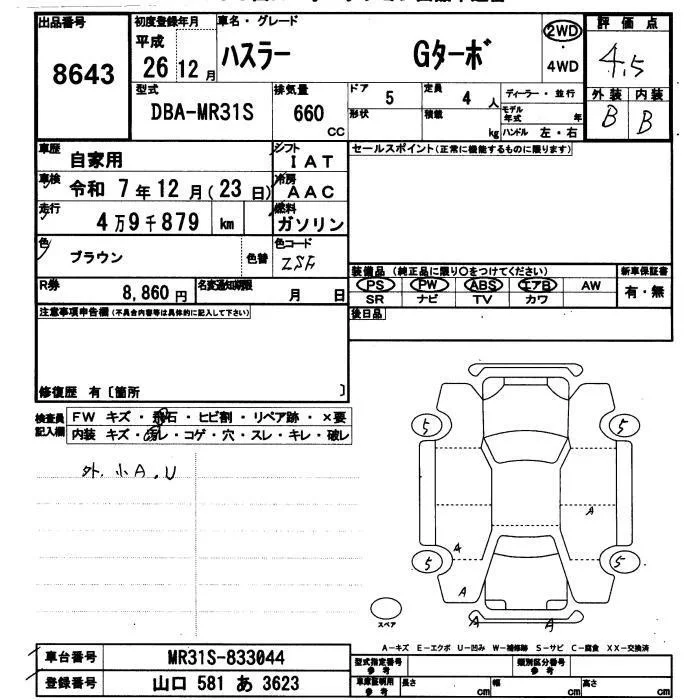 出品番号
8643
初度登録年月
平成
26 12 月
車名・グレード
ハスラー Gターボ
2WD
・
4WD
評価点
4.5
外装 内装
B B
型式
DBA-MR31S
排気量
660
CC
ドア
5
定員
4 人
形状
積載
kg
ディーラー・並行
モデル年式 年
ハンドル 左・右
車歴
自家用
シフト
I A T
車検
令和 7 年 12 月 ( 23 日)
冷房
A A C
走行
4 万 9 千 879 km
燃料
ガソリン
色
ブラウン
色替
色コード
ZSH
R券
8,860 円
名変通知期限
月 日
セールスポイント(正常に機能するものに限ります)
装備品 (純正品に限り○をつけてください)
PS PW ABS エアB AW
SR ナビ TV カワ
新車保証書
有・無
後日品
注意事項申告欄(不具合内容等は具体的に記入して下さい)
修復歴 有〔箇所 〕
検査員記入欄
FW キズ・飛石・ヒビ割・リペア跡・×要
内装 キズ・汚レ・コゲ・穴・スレ・キレ・破レ
外. 小A.U
5 5
A
A
5 5
A
A A
スペア
A-キズ E-エクボ U-凹み W-補修跡 S-サビ C-腐食 XX-交換済
車台番号
MR31S-833044
登録番号
山口 581 あ 3623
型式指定番号
参考
類別区分番号
参考
車庫証明用
参考
長さ cm
幅 cm
高さ cm